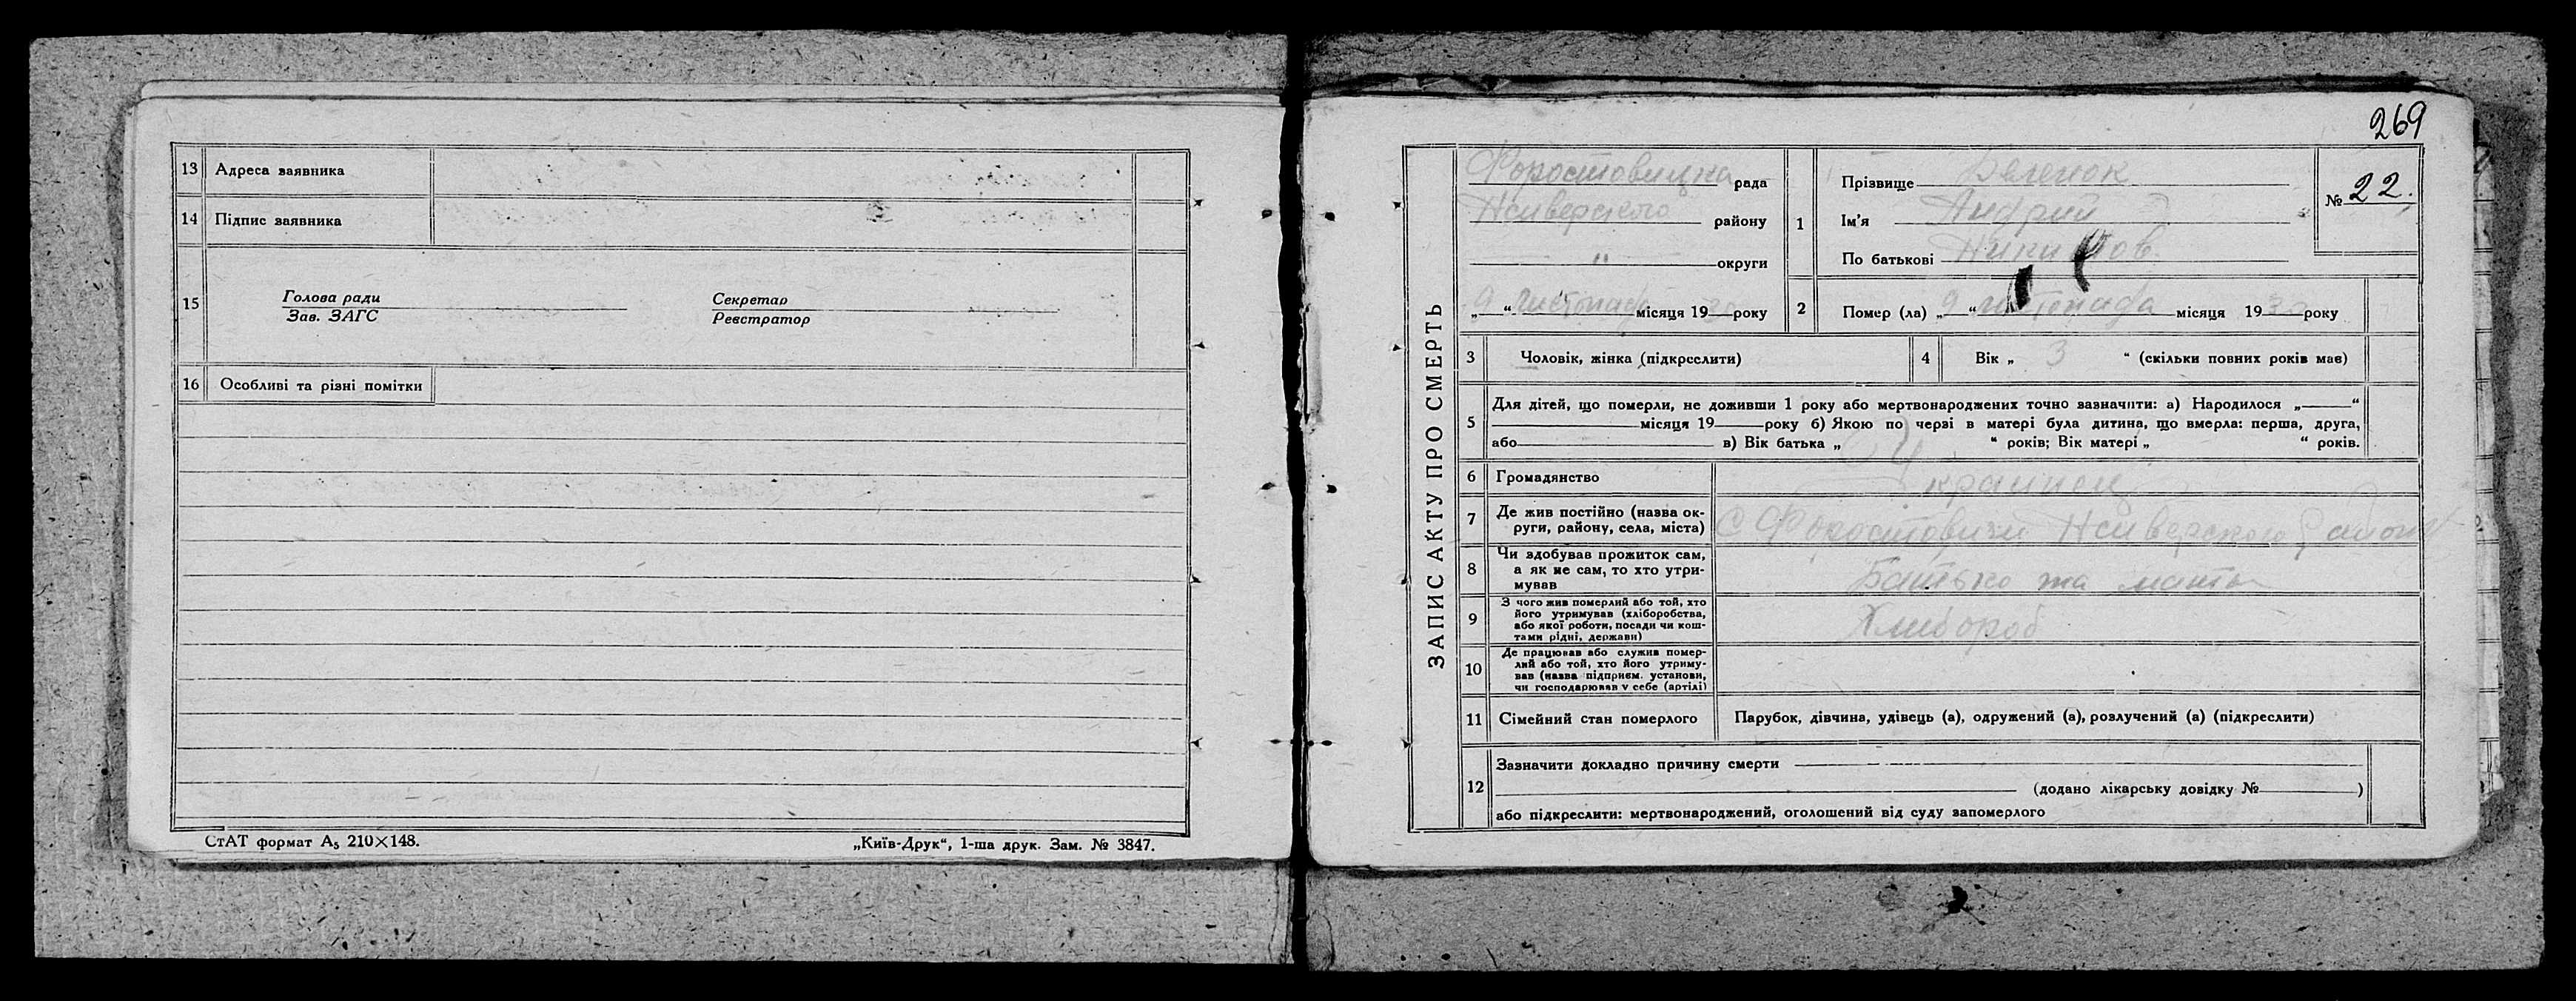 13 Адреса заявника
14 Підпис заявника
15 Голова ради
Зав. ЗАГС
Секретар
Реєстратор
16 Особливі та різні помітки
СтАТ формат А₅ 210×148.
„Київ-Друк“, 1-ша друк. Зам. № 3847.
269
ЗАПИС АКТУ ПРО СМЕРТЬ
Форостовицка рада
району
" округи
„9“ листопада місяця 19 року
1 Прізвище
Ім'я Андрий
По батькові
№ 22.
2 Помер (ла) „9“ листопада місяця 19 року
3 Чоловік, жінка (підкреслити)
4 Вік „ 3 “ (скільки повних років має)
5 Для дітей, що померли, не доживши 1 року або мертвонароджених точно зазначити: а) Народилося „ “
місяця 19 року б) Якою по черзі в матері була дитина, що вмерла: перша, друга,
або в) Вік батька „ “ років; Вік матері „ “ років.
6 Громадянство Украинец
7 Де жив постійно (назва ок-
руги, району, села, міста) С Форостовичи
8 Чи здобував прожиток сам,
а як не сам, то хто утри-
мував Батько та мать
9 З чого жив померлий або той, хто
його утримував (хліборобства,
або якої роботи, посади чи кош-
тами рідні, держави) Хлибороб
10 Де працював або служив помер-
лий або той, хто його утриму-
вав (назва підприєм. установи,
чи господарював у себе (артілі)
11 Сімейний стан померлого Парубок, дівчина, удівець (а), одружений (а), розлучений (а) (підкреслити)
12 Зазначити докладно причину смерти
(додано лікарську довідку № )
або підкреслити: мертвонароджений, оголошений від суду запомерлого